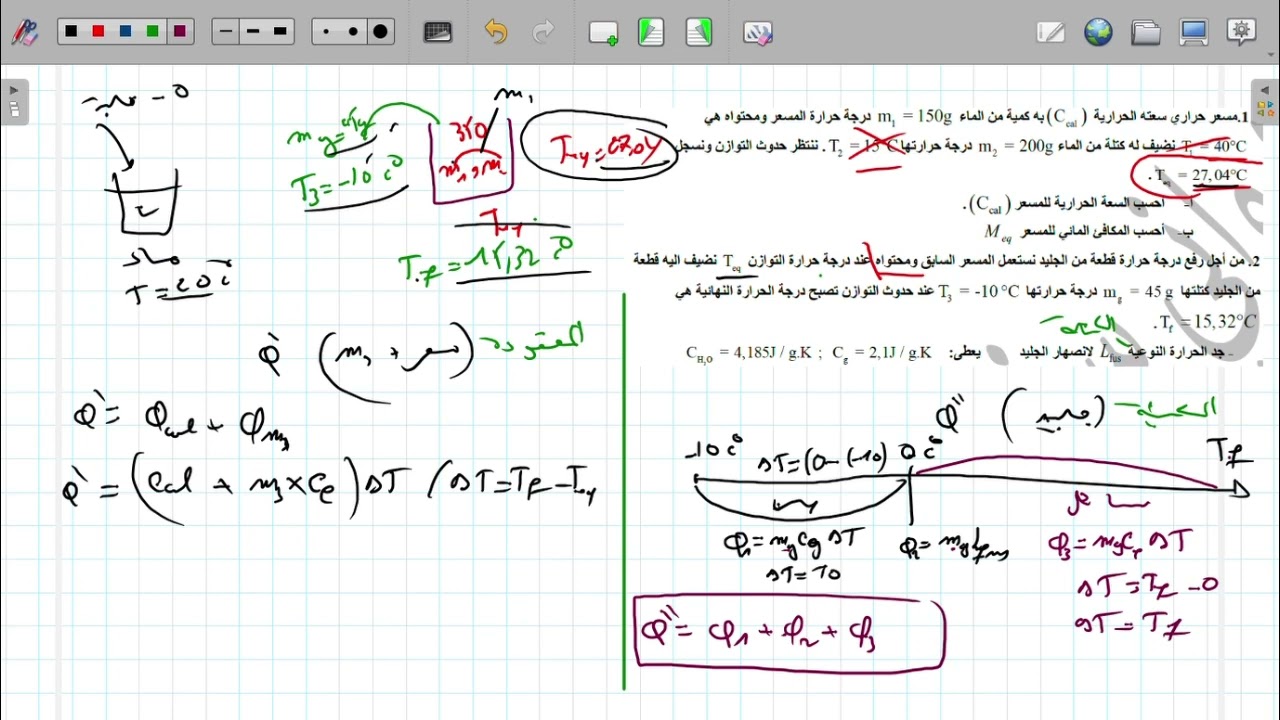 1.مسعر حراري سعته الحرارية (Ccal) به كمية من الماء m1 = 150g درجة حرارة المسعر ومحتواه هي
T1 = 40°C نضيف له كتلة من الماء m2 = 200g درجة حرارتها T2 = 15°C . ننتظر حدوث التوازن ونسجل
Teq = 27,04°C .
أ- احسب السعة الحرارية للمسعر (Ccal).
ب- أحسب المكافئ المائي للمسعر Meq
2. من أجل رفع درجة حرارة قطعة من الجليد نستعمل المسعر السابق ومحتواه عند درجة حرارة التوازن Teq نضيف اليه قطعة
من الجليد كتلتها mg = 45 g درجة حرارتها T3 = -10 °C عند حدوث التوازن تصبح درجة الحرارة النهائية هي
Tf = 15,32°C.
- جد الحرارة النوعية Lfus لانصهار الجليد يعطى: CH2O = 4,185J / g.K ; Cg = 2,1J / g.K
جليد - 0
ماء
T = 20 c°
T3 = -10 c°
350
m1
Tf = 15,32 c°
Q' (m3 + مسعر) المفقودة
Q' = Qcal + Qm3
Q' = (Ccal + m3 × Ce) ΔT / ΔT = Tf -
Q'' (جليد) المكتسبة
-10 c° ΔT = (0-(-10) 0 c° Tf
Q1 = mg cg ΔT
ΔT = 10
Q2 = mg Lfus
Q3 = mg Ce ΔT
ΔT = Tf - 0
ΔT = Tf
Q'' = Q1 + Q2 + Q3